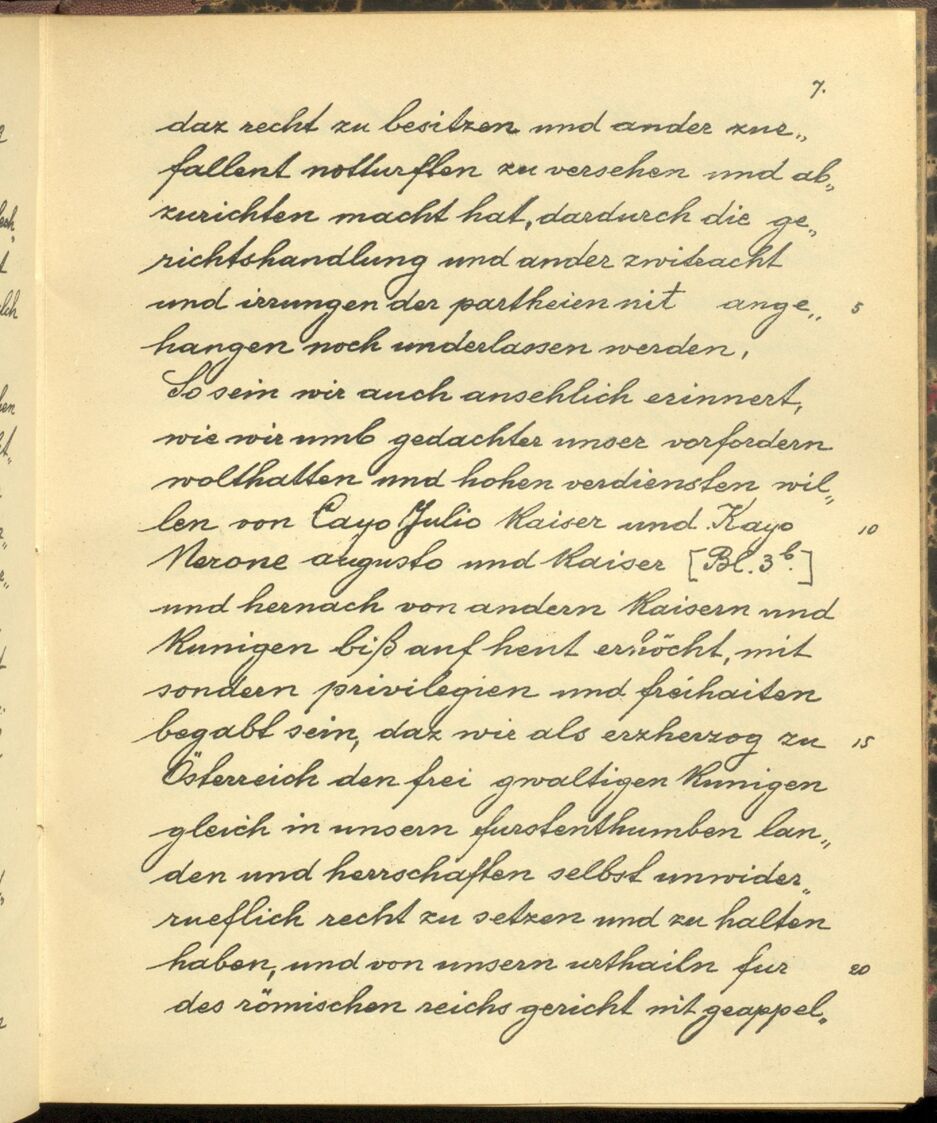 7.
daz recht zu besitzen und ander zue„
fallent notturften zu versehen und ab„
zurichten macht hat, dardurch die ge„
richtshandlung und ander zwitracht
und irrungen der partheien nit ange„ 5
hangen noch underlassen werden,
So sein wir auch ansehlich erinnert,
wie wir umb gedachter unser vorfordern
wolthatten und hohen verdiensten wil„
len von Cayo Julio Kaiser und Kayo 10
Nerone augusto und Kaiser [Bl. 3b.]
und hernach von andern Kaisern und
Kunigen biß auf heut erhöcht, mit
sondern privilegien und freihaiten
begabt sein, daz wir als erzherzog zu 15
Österreich den frei gwaltigen Kunigen
gleich in unsern furstenthumben lan„
den und herrschaften selbst unwider„
rueflich recht zu setzen und zu halten
haben, und von unsern urthailn fur 20
des römischen reichs gericht nit geappel„